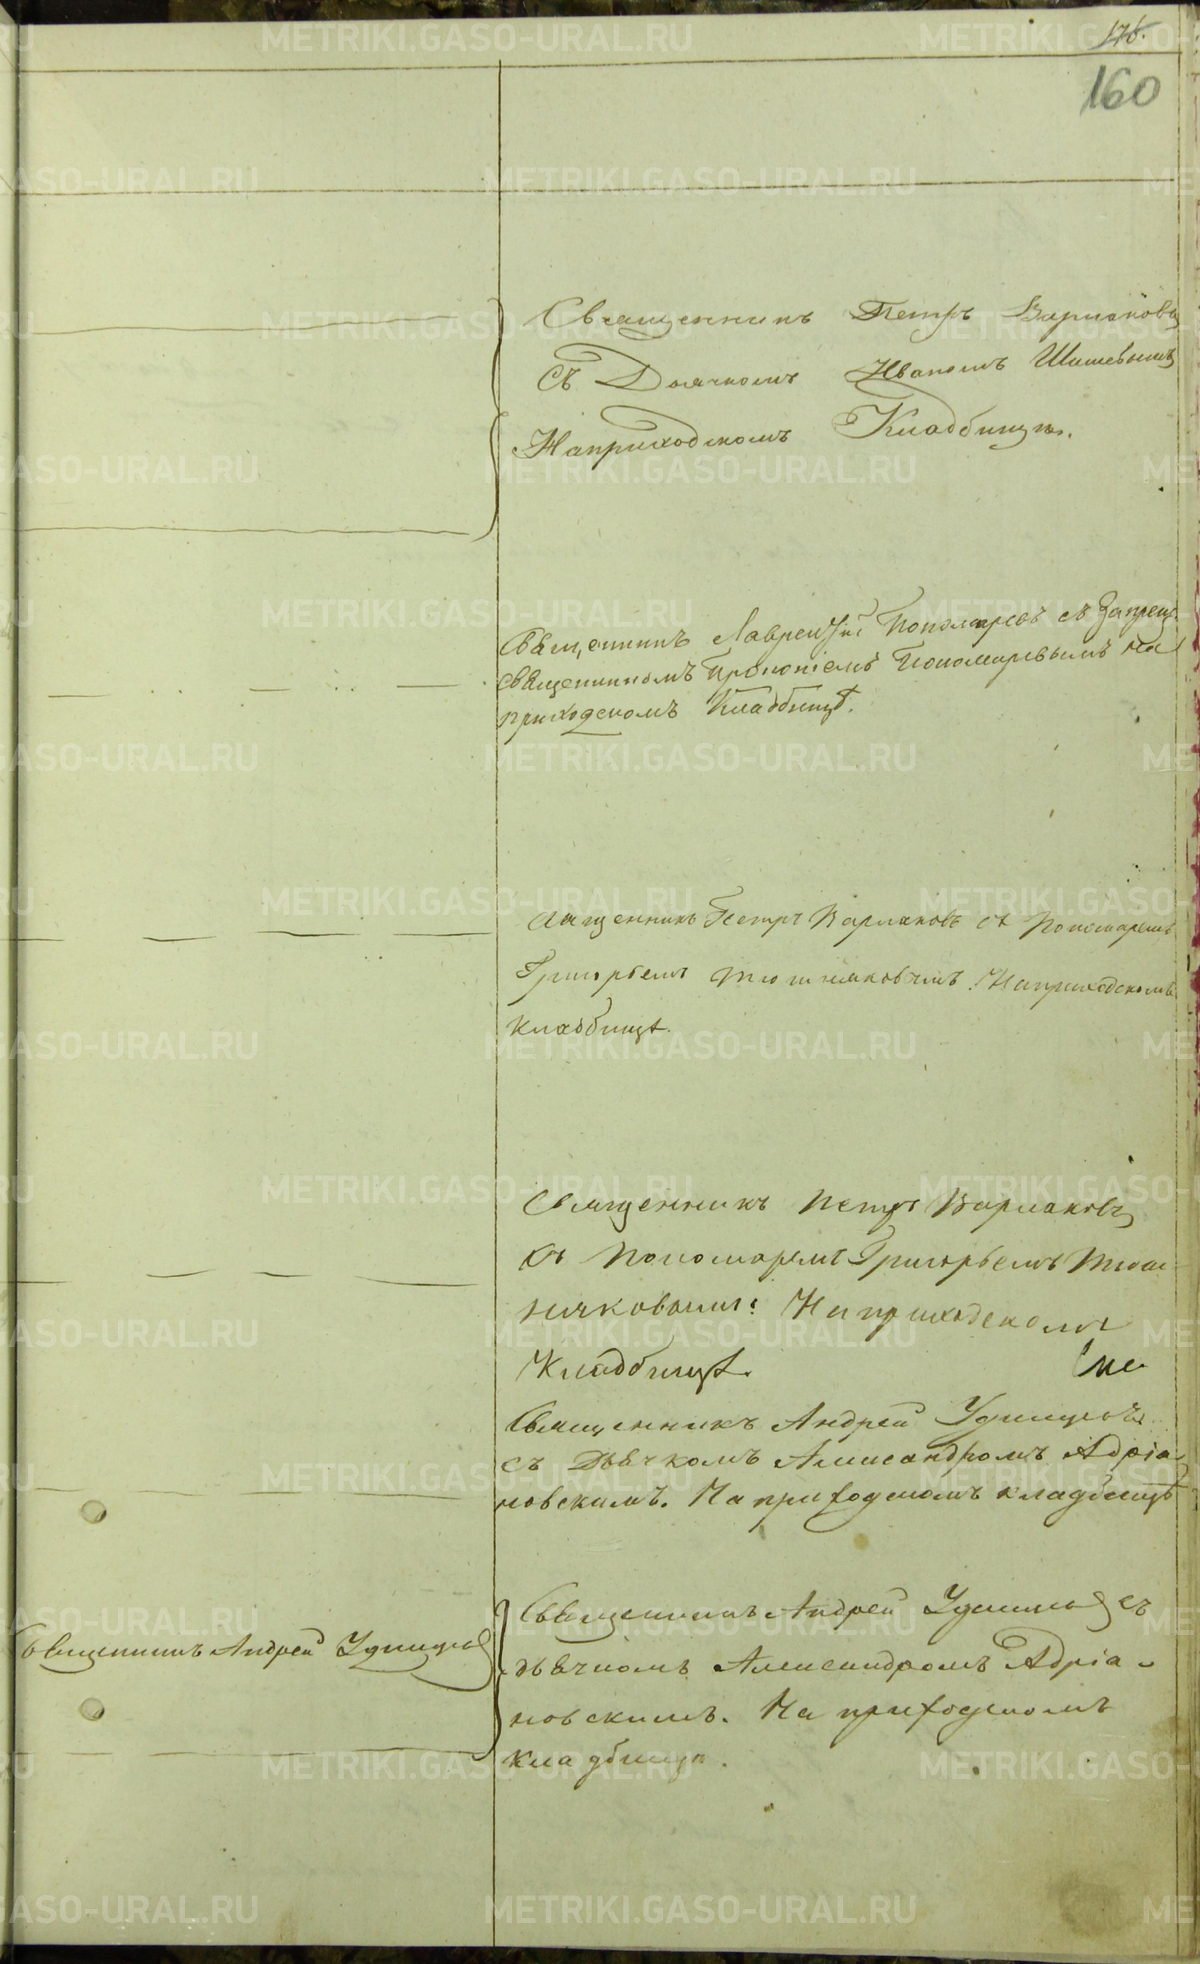 176.
160
Священникъ Петръ Варлаковъ
Съ Дьячкомъ Иваномъ Шишевымъ
На приходскомъ Кладбищѣ.
Священникъ Лаврентій Пономаревъ съ Запрещ.
священникомъ Прокопіемъ Пономаревымъ на
приходскомъ Кладбищѣ.
Священникъ Петръ Варлаковъ съ Пономаремъ
Григорьемъ Тюшняковымъ. На приходскомъ
кладбищѣ.
Священникъ Петръ Варлаковъ
съ Пономаремъ Григорьемъ Тюш
няковымъ: На приходскомъ
Кладбищѣ.
Священникъ Андрей Удинцовъ
съ Дьячкомъ Александромъ Адріа
новскимъ. На приходскомъ кладбищѣ
Священникъ Андрей Удинцовъ
Священникъ Андрей Удинцовъ съ
дьячкомъ Александромъ Адріа-
новскимъ. На приходскомъ
кладбищѣ.
METRIKI.GASO-URAL.RU